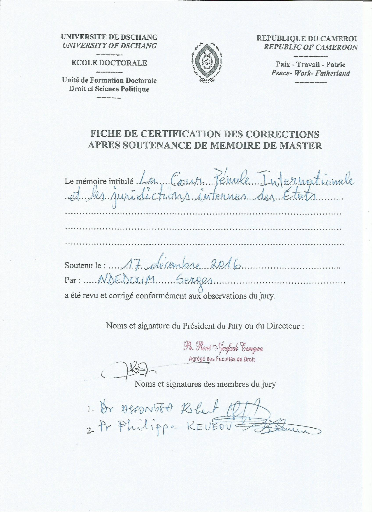 UNIVERSITE DE DSCHANG
UNIVERSITY OF DSCHANG
ECOLE DOCTORALE
Unité de Formation Doctorale
Droit et Science Politique
REPUBLIQUE DU CAMEROU
REPUBLIC OF CAMEROON
Paix - Travail - Patrie
Peace- Work- Fatherland
FICHE DE CERTIFICATION DES CORRECTIONS
APRES SOUTENANCE DE MEMOIRE DE MASTER
Le mémoire intitulé La Cour Pénale Internationale
et les juridictions internes des Etats
Soutenu le : 17 décembre 2016
Par : Serges
a été revu et corrigé conformément aux observations du jury.
Noms et signature du Président du Jury ou du Directeur :
Agrégé des Facultés de Droit
Noms et signatures des membres du jury
1. Dr Robert
2. Pr Philippe KEUBOU